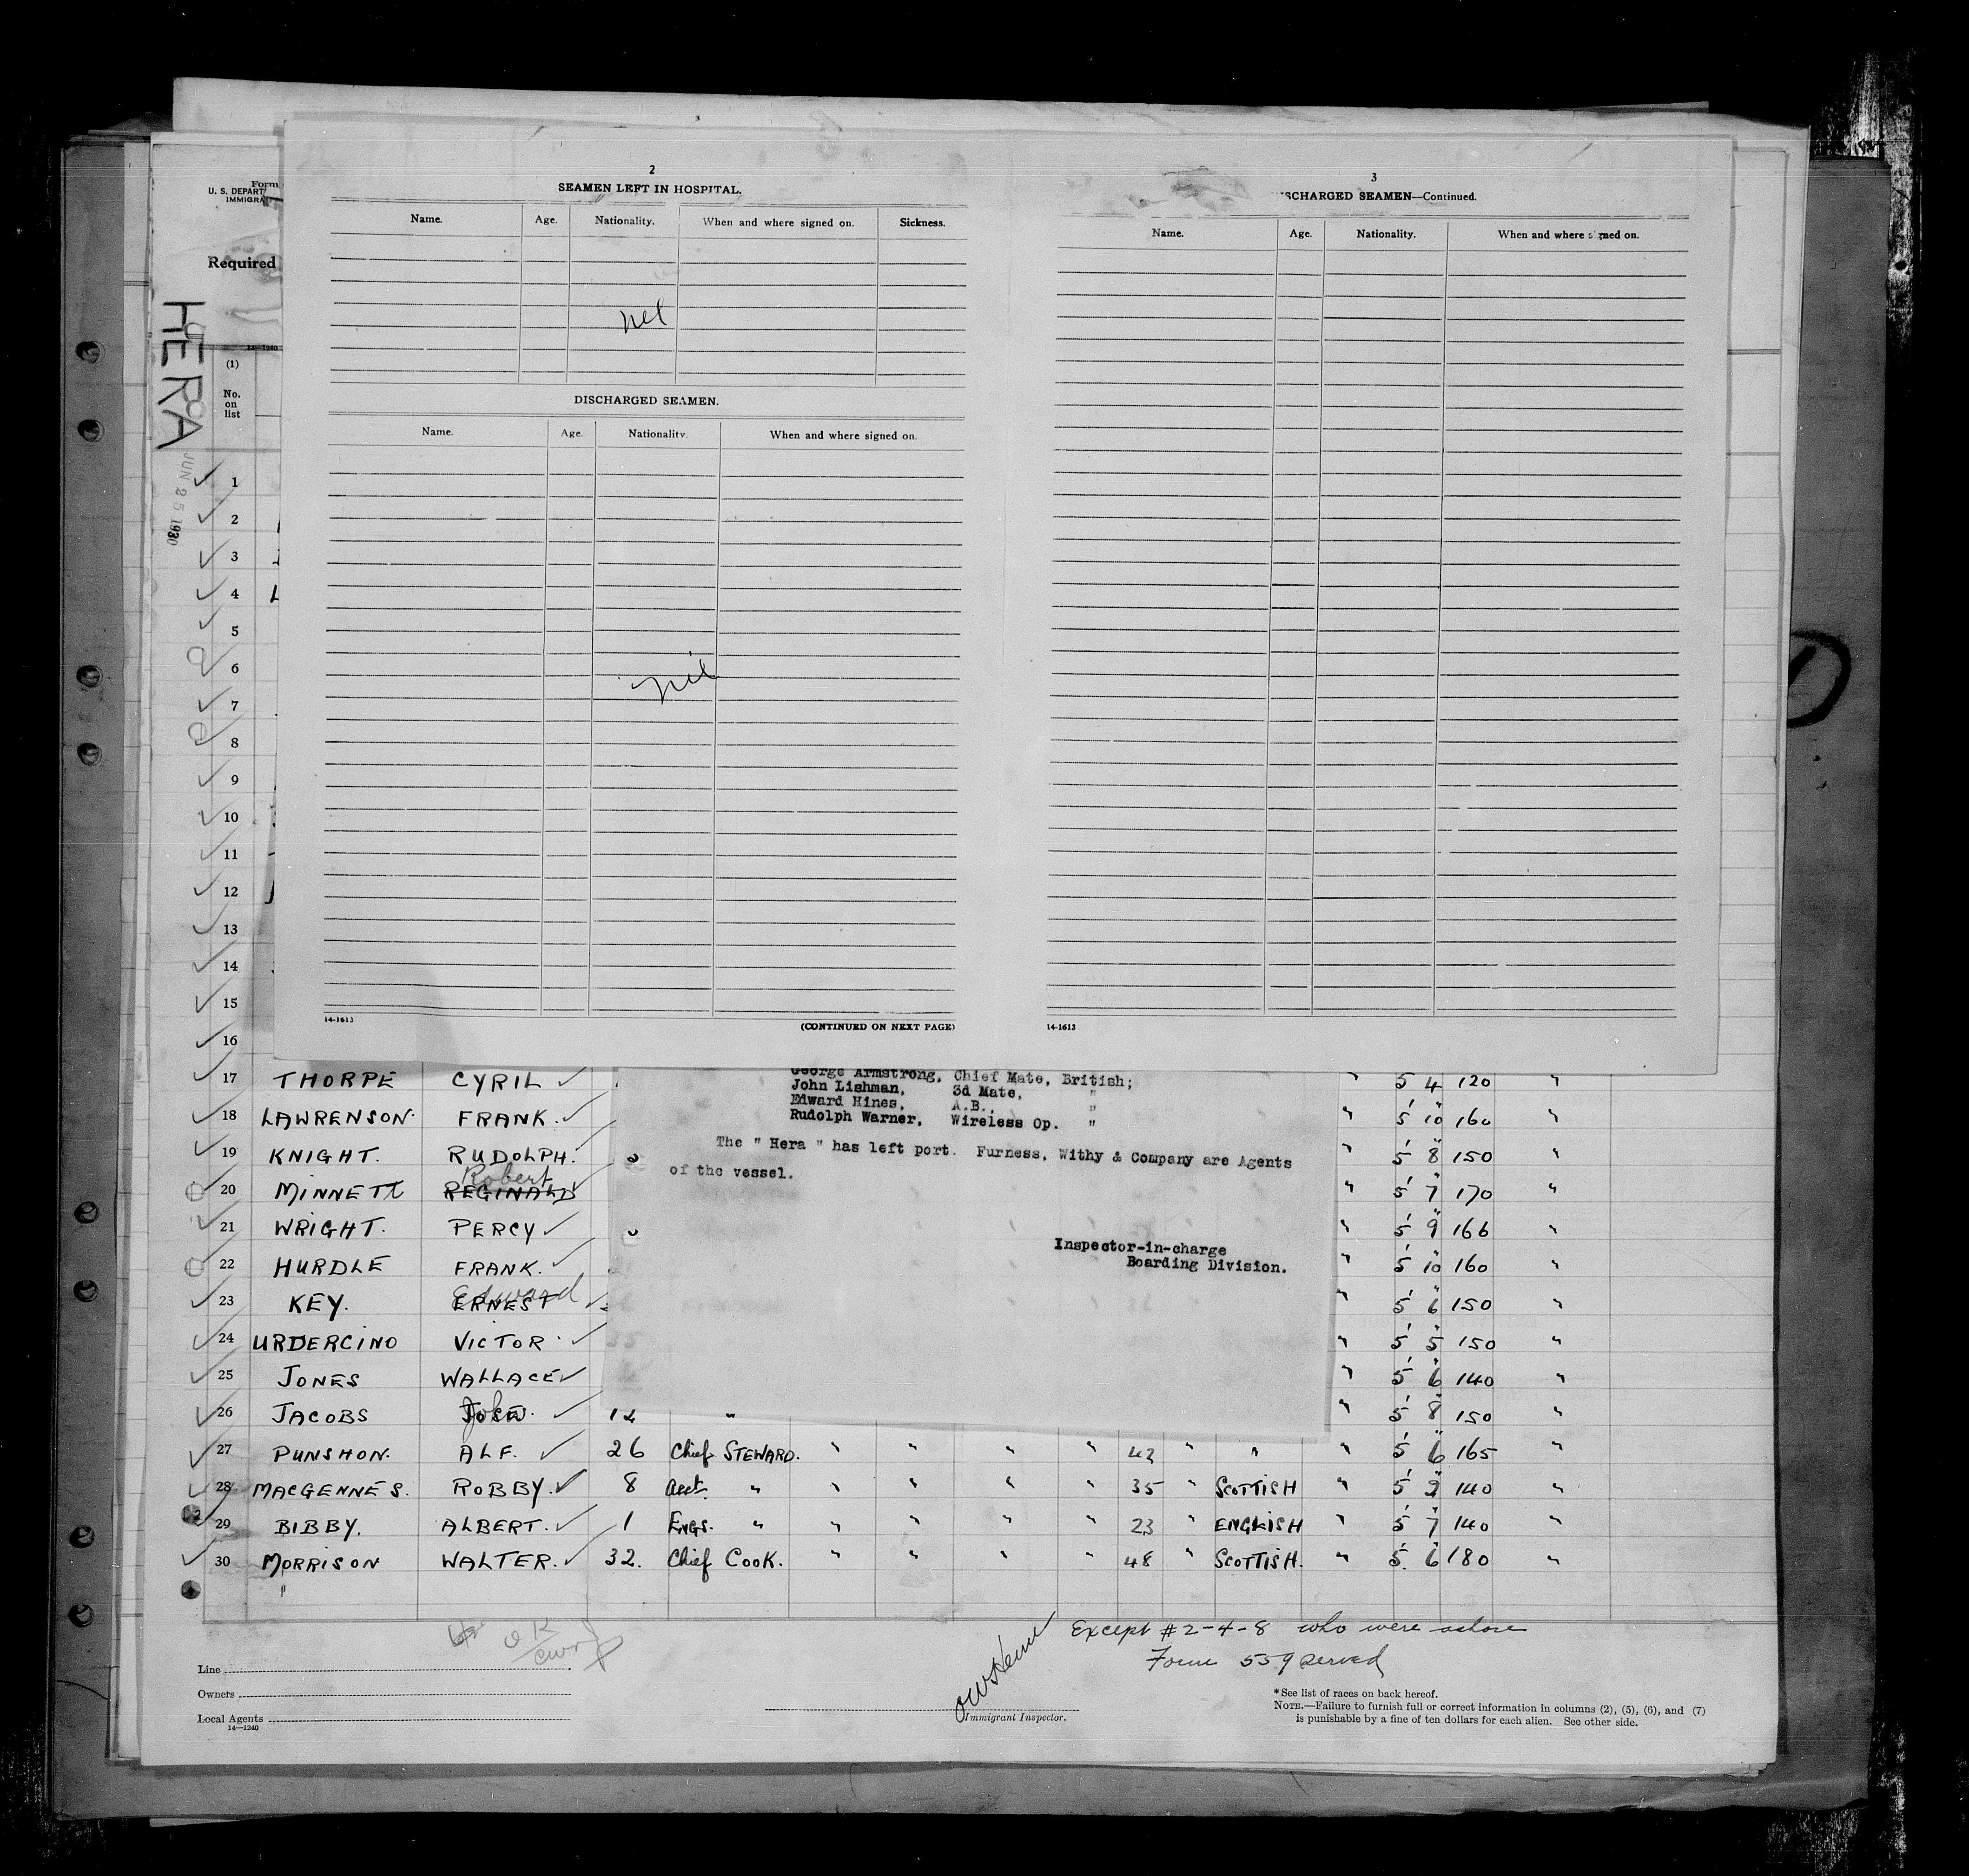 2
SEAMEN LEFT IN HOSPITAL.
Name. Age. Nationality. When and where signed on. Sickness.
nil
DISCHARGED SEAMEN.
Name. Age. Nationality. When and where signed on.
nil
14-1613
(CONTINUED ON NEXT PAGE)
3
SCHARGED SEAMEN—Continued.
Name. Age. Nationality. When and where signed on.
14-1613
Form
U. S. DEPART
IMMIGRA
Required
14—1240
HERA
JUN 25 1930
(1)
No. on list
1
2
3
4
5
6
7
8
9
10
11
12
13
14
15
16
George Armstrong, Chief Mate, British;
John Lishman, 3d Mate, "
Edward Hines, A.B., "
Rudolph Warner, Wireless Op. "
The " Hera " has left port. Furness, Withy & Company are Agents
of the vessel.
Inspector-in-charge
Boarding Division.
17 THORPE CYRIL ✓ " 5' 4" 120 "
18 LAWRENSON. FRANK. ✓ " 5' 10" 160 "
19 KNIGHT. RUDOLPH. ✓ " 5' 8" 150 "
20 MINNETT REGINALD Robert ✓ " 5' 7" 170 "
21 WRIGHT. PERCY ✓ " 5' 9" 166 "
22 HURDLE FRANK. ✓ " 5' 10" 160 "
23 KEY. ERNEST Edward ✓ " 5' 6" 150 "
24 URDERCINO VICTOR ✓ " 5' 5" 150 "
25 JONES WALLACE ✓ " 5' 6" 140 "
26 JACOBS John ✓ 12 " " 5' 8" 150 "
27 PUNSHON. ALF. ✓ 26 Chief STEWARD. " " " " 42 " " " 5' 6" 165 "
28 MACGENNES. ROBBY. ✓ 8 Asst. " " " " " 35 " SCOTTISH " 5' 9" 140 "
29 BIBBY. ALBERT. ✓ 1 ENGS. " " " " " 23 " ENGLISH " 5' 7" 140 "
30 MORRISON WALTER. ✓ 32. Chief COOK. " " " " 48 " SCOTTISH. " 5' 6" 180 "
OK
Except #2-4-8 who were ashore
Form 559 served
Line
Owners
Local Agents
14—1240
Immigrant Inspector.
* See list of races on back hereof.
NOTE.—Failure to furnish full or correct information in columns (2), (5), (6), and (7)
is punishable by a fine of ten dollars for each alien. See other side.